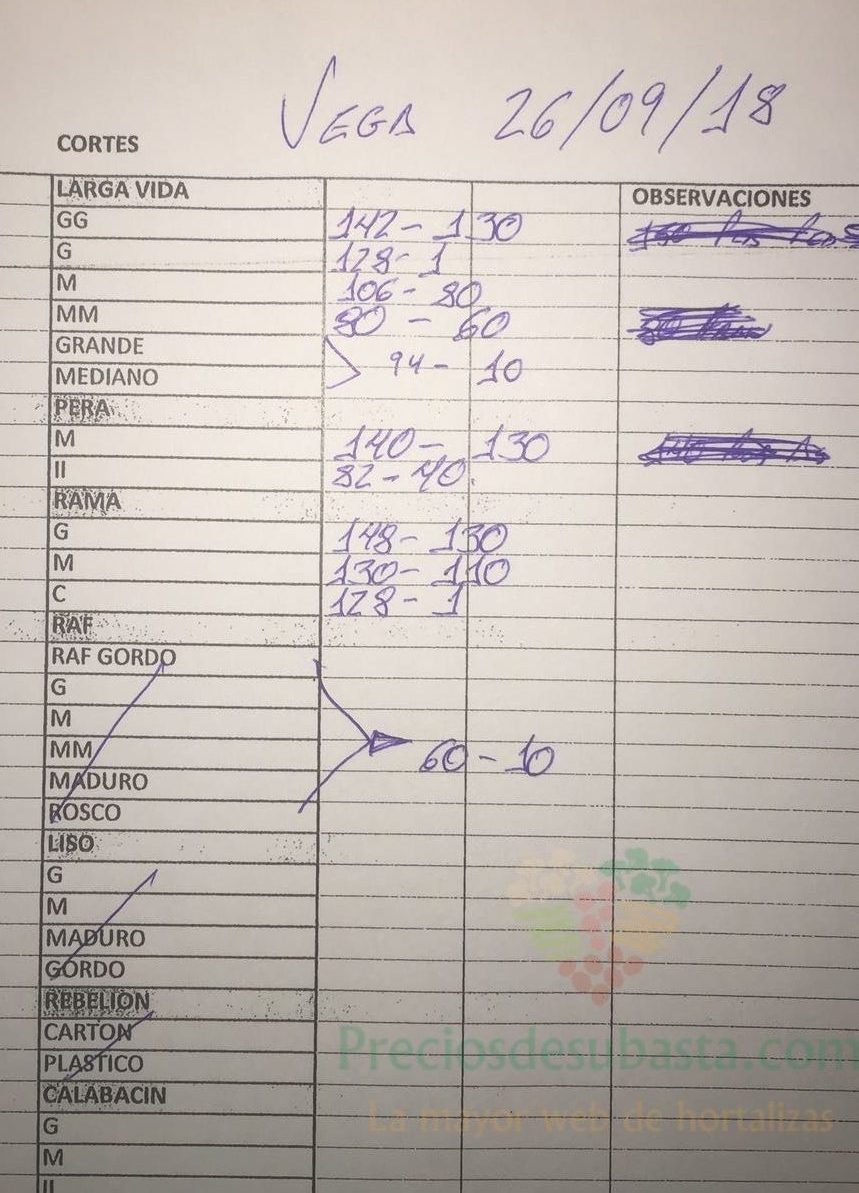 VEGA 26/09/18
CORTES
LARGA VIDA OBSERVACIONES
GG 142 - 130
G 128 - 1
M 106 - 80
MM 80 - 60
GRANDE
MEDIANO > 94 - 10
PERA
M 140 - 130
II 82 - 40
RAMA
G 148 - 130
M 130 - 110
C 128 - 1
RAF
RAF GORDO
G
M
MM 60 - 10
MADURO
ROSCO
LISO
G
M
MADURO
GORDO
REBELION
CARTON
PLASTICO
Preciosdesubasta.com
CALABACIN
La mayor web de hortalizas
G
M
II